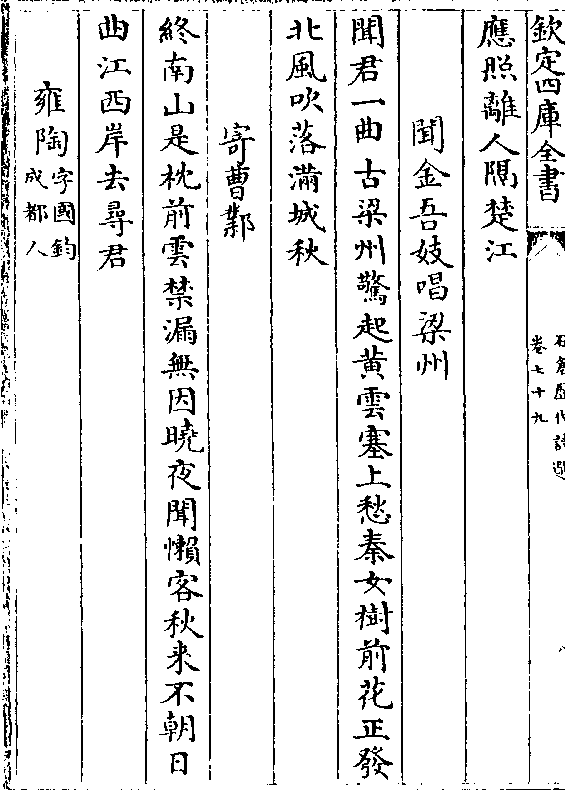 欽定四庫全書
石倉歷代詩選
卷七十九
應照離人隔楚江
聞金吾妓唱梁州
聞君一曲古梁州驚起黄雲塞上愁秦女樹前花正發
北風吹落滿城秋
寄曹鄴
終南山是枕前雲禁漏無因曉夜聞懶客秋来不朝日
曲江西岸去尋君
雍陶字國鈞
成都人